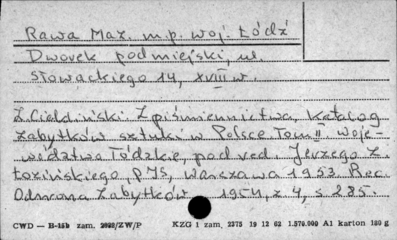 Rawa Maz. m.p. woj. Łódź
Dworek podmiejski, ul.
Słowackiego 14, XVIII w.
Z piśmiennictwa, Katalog
zabytków sztuki w Polsce Tom II. Woje-
wództwo Łódzkie, pod red. Jerzego Z.
Łozińskiego, Warszawa 1953 Rec.
Ochrona Zabytków 1954, z 4, s 285.
CWD — B-15b zam. /ZW/P KZG 1 zam. 2275 19 12 62 1.570.000 A1 karton 180 g